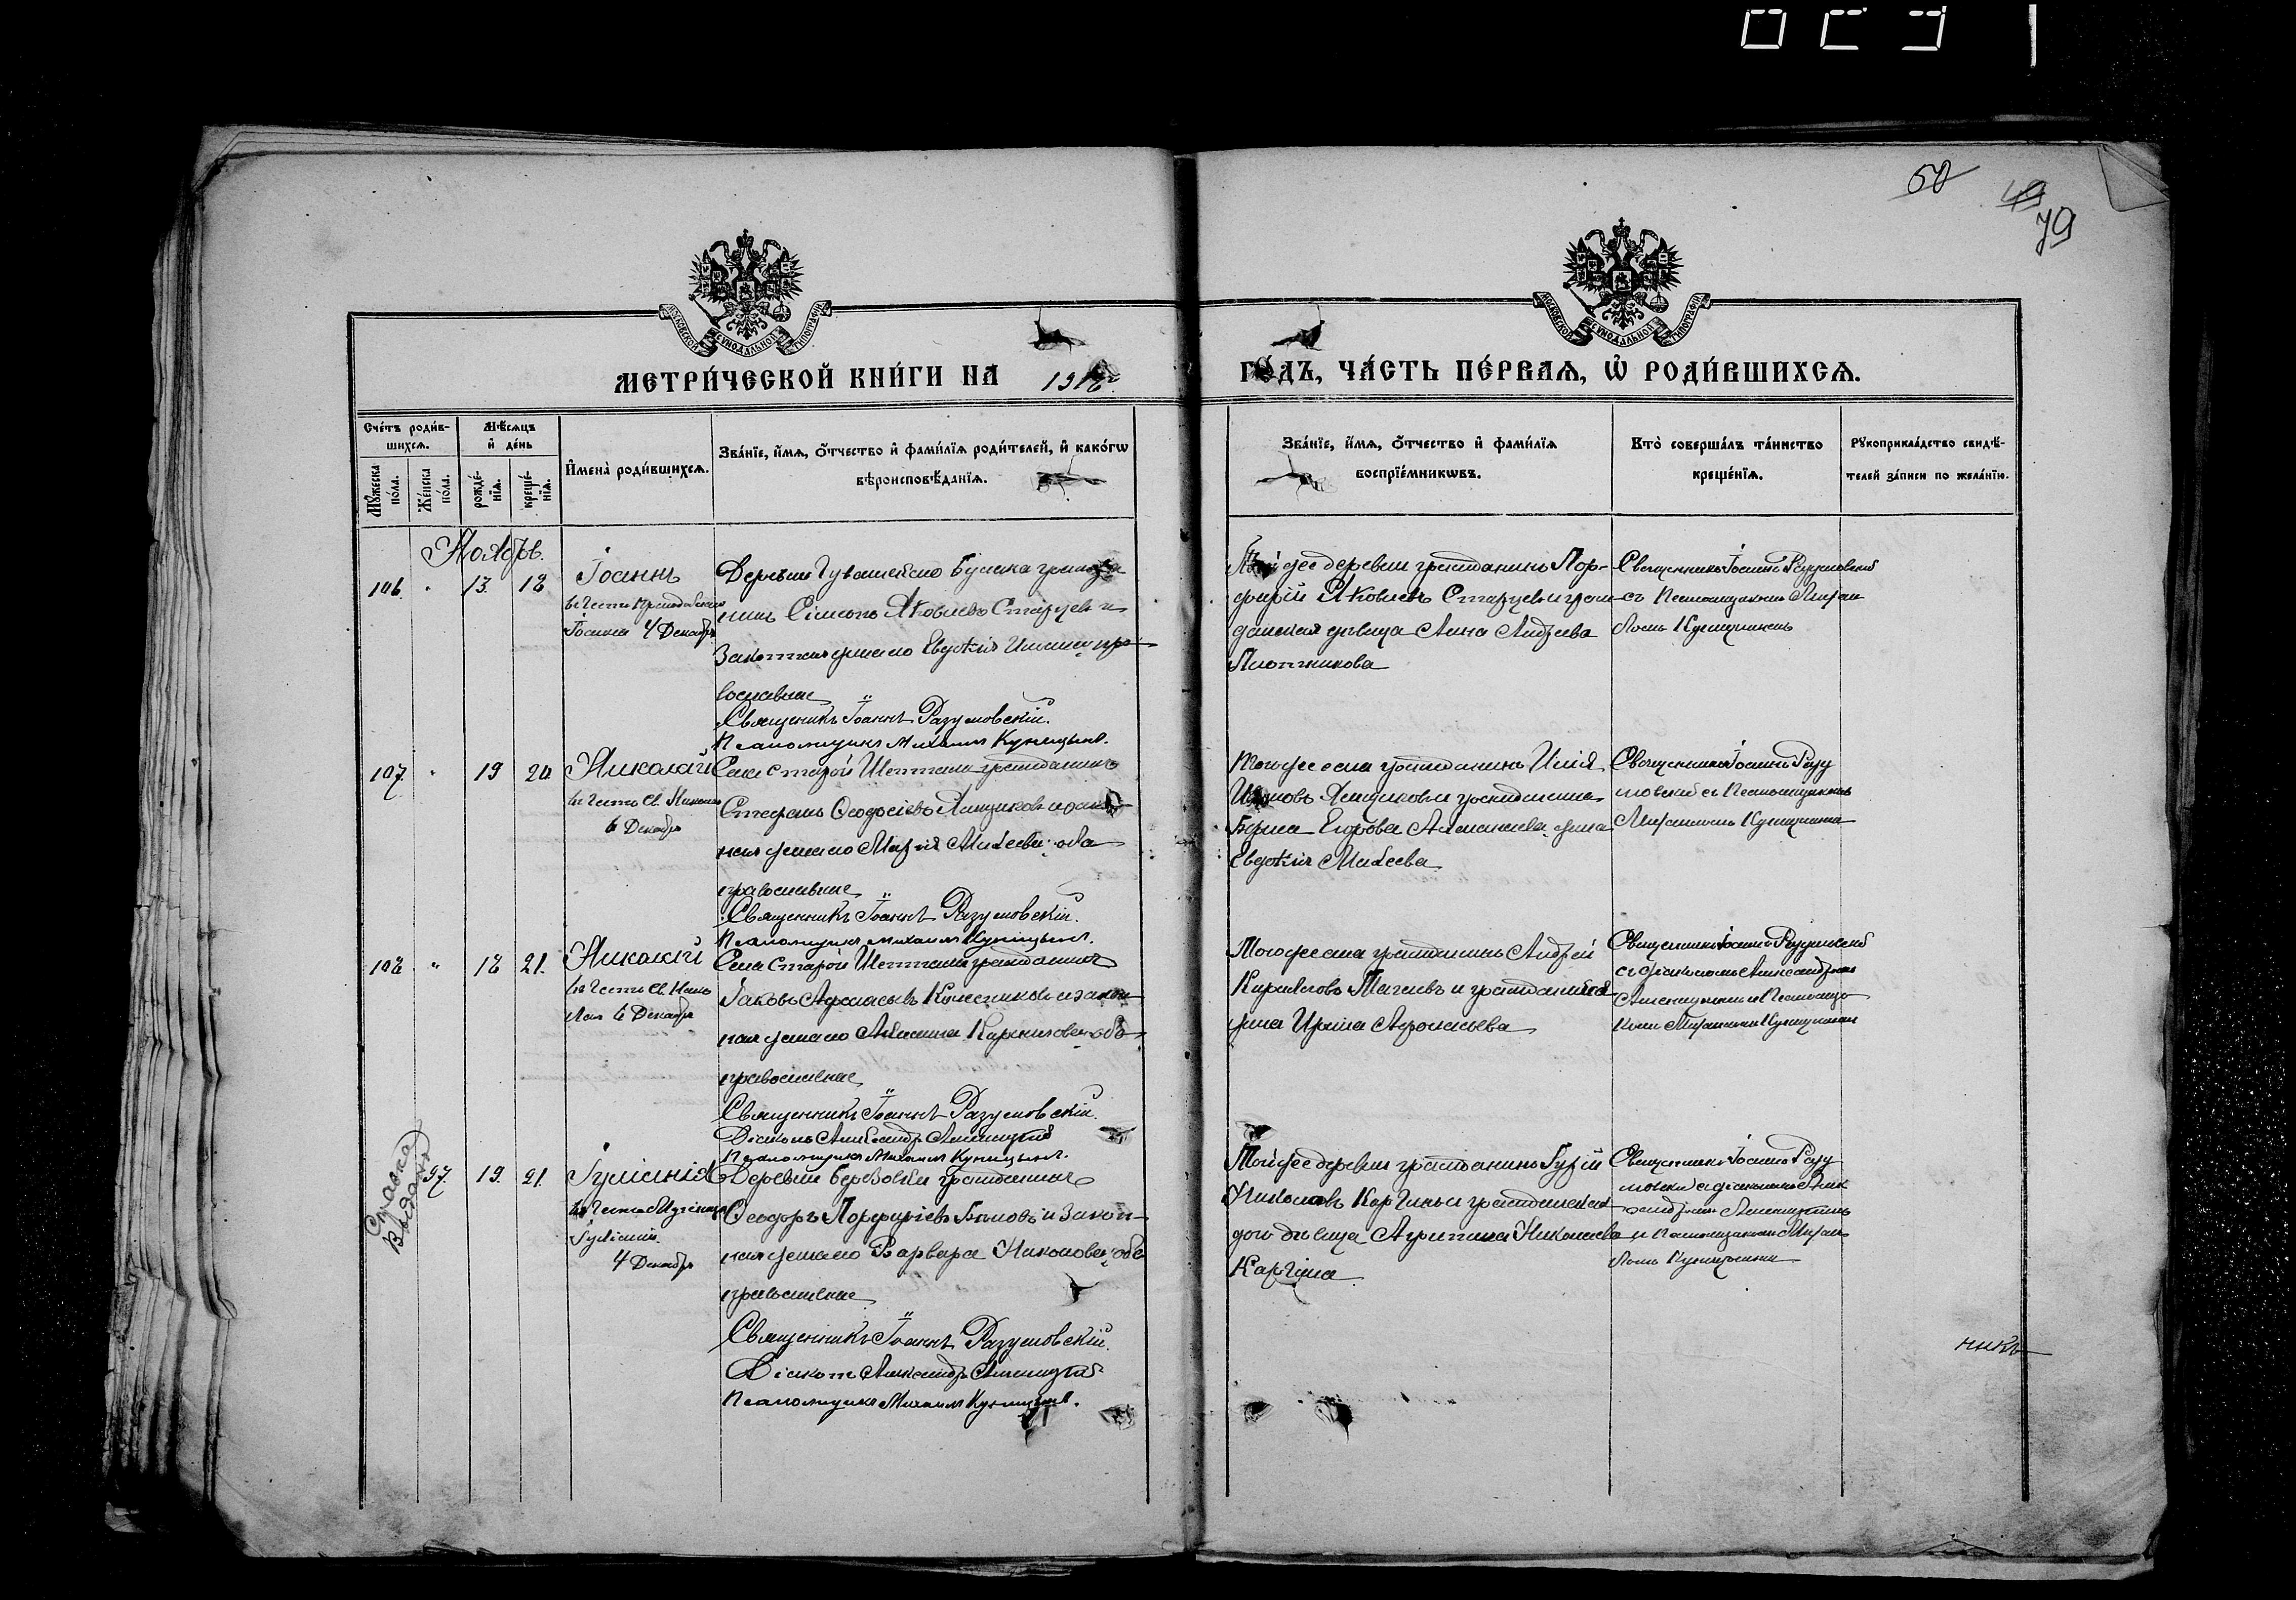 50
49
79
МОСКОВСКОЙ СѴНОДАЛЬНОЙ ТИПОГРАФІИ
МОСКОВСКОЙ СѴНОДАЛЬНОЙ ТИПОГРАФІИ
МЕТРИ́ЧЕСКОЙ КНИ́ГИ НА 1918 г.
ГО́ДЪ, ЧА́СТЬ ПЕ́РВАѦ, Ѡ҆ РОДИ́ВШИХСѦ.
Сче́тъ роди́в-
шихсѧ.
Мꙋ́жеска по́ла.
Же́нска по́ла.
Мѣ́сѧцъ
и҆ де́нь
рожде́-
нїѧ.
креще́-
нїѧ.
И҆мена̀ роди́вшихсѧ.
Зва́нїе, и҆́мѧ, ѻ҆́тчество и҆ фами́лїѧ роди́телей, и҆ како́гѡ
вѣроисповѣ́данїѧ.
Зва́нїе, и҆́мѧ, ѻ҆́тчество и҆ фами́лїѧ
воспрїе́мникѡвъ.
Кто̀ соверша́лъ та́инство
креще́нїѧ.
Рꙋкоприкла́дство свидѣ́-
телей за́писи по жела́нїю.
Ноябрь.
106. " 13. 18
Іоаннъ
Іоанна 4 Декабря
Деревни Чувашскаго Булака гражда
нинъ Симеонъ Яковлевъ Старцевъ и
Законная жена его Евдокія пра-
вославные
Священникъ Іоаннъ Разумовскій.
Псаломщикъ Михаилъ Куницынъ.
Той же деревни гражданинъ Пор-
фирій Яковлевъ Старцевъ и граж
данская дѣвица Анна Андреева
Плотникова
Священникъ Іоаннъ Разумовскій
съ Псаломщикомъ Михаи
ломъ Куницынымъ
107. " 19 20
Николай
въ честь Св. Николая
6 Декабря
Села Старой Шентала гражданинъ
Стефанъ Ѳеодосіевъ Ямщиковъ и закон
ная жена его Марія Матѳеева оба
православные
Священникъ Іоаннъ Разумовскій.
Псаломщикъ Михаилъ Куницынъ.
Того же села гражданинъ Илія
Ямщиковъ и гражданина
Егорова жена
Евдокія Матѳеева
Священникъ Іоаннъ Разу
мовскій съ Псаломщикомъ
Михаиломъ Куницынымъ
108 " 18 21.
Николай
въ честь Св. Нико
лая 6 Декабря
Села Старой Шентала гражданинъ
Іаковъ Колесниковъ и закон
ная жена его Корнилова оба
православные
Священникъ Іоаннъ Разумовскій.
Діаконъ Александръ
Псаломщикъ Михаилъ Куницынъ.
Того же села гражданинъ Андрей
Кирилловъ и гражданина
жена Ирина Афонасьева
Священникъ Іоаннъ Разумовскій
съ діакономъ Александромъ
и Псаломщи
комъ Михаиломъ Куницынымъ
Справка
выдана
97. 19. 21.
Іуліанія
въ честь Мученицы
Іуліаніи.
4 Декабря
Деревни Березовки гражданинъ
Ѳеодоръ Порфирьевъ и закон-
ная жена его Варвара Николаева оба
православные
Священникъ Іоаннъ Разумовскій.
Діаконъ Александръ
Псаломщикъ Михаилъ Куницынъ.
Той же деревни гражданинъ Гурій
Николаевъ Каргинъ и гражданская
дѣвица Агрипина Николаева
Каргина
Священникъ Іоаннъ Разу
мовскій съ діакономъ Алек
сандромъ
и Псаломщикомъ Михаи
ломъ Куницынымъ
никъ